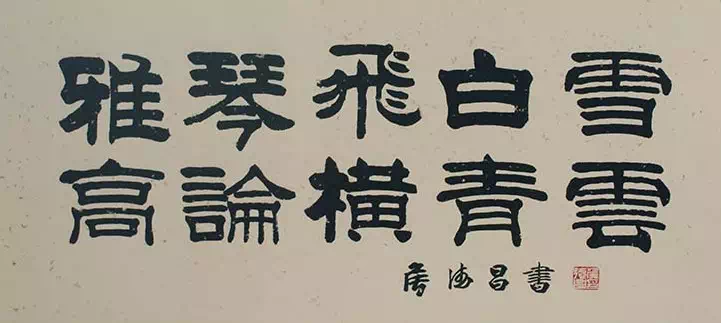 雪白飛琴雅
雲青橫論高
海昌書